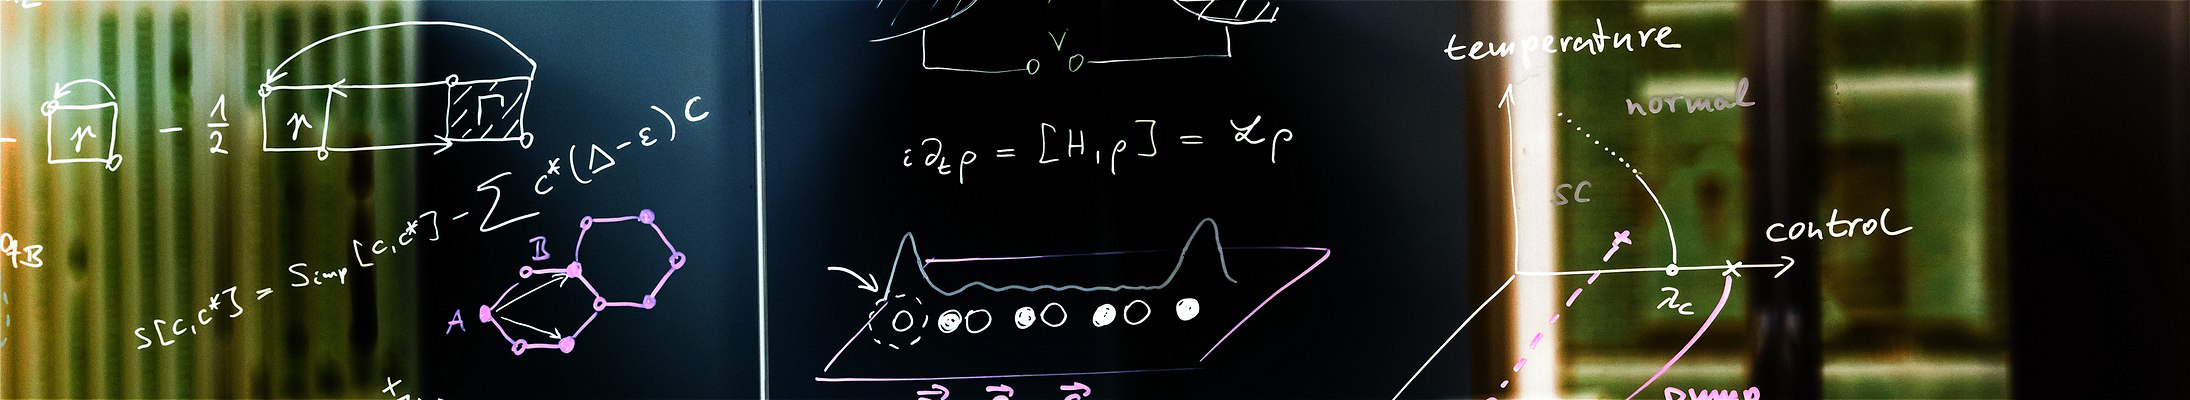 γ - 1/2 γ Γ
S[c,c*] = Simp[c,c*] - ∑ c*(Δ-ε)c
B
A
V
i∂tρ = [H,ρ] = ℒρ
temperature
normal
SC
control
λc
pump